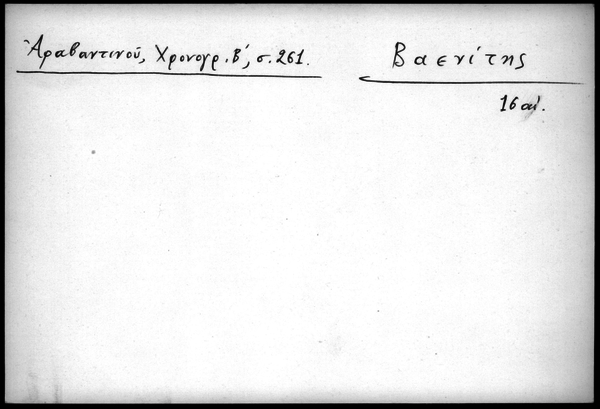 Ἀραβαντινοῦ, Χρονογρ. Β΄, σ. 261.
Βαενίτης
16 αἰ.